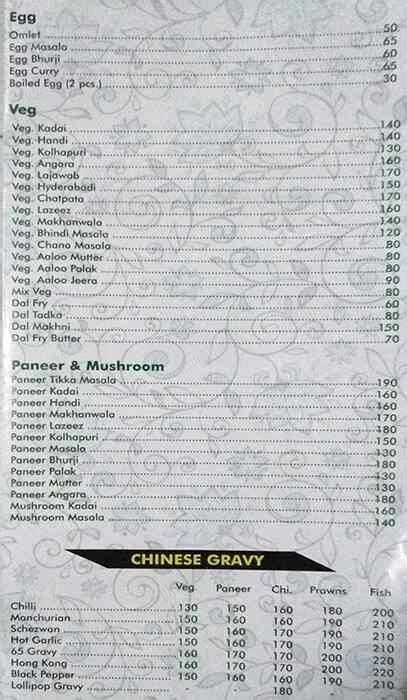 Egg
Omlet 50
Egg Masala 65
Egg Bhurji 60
Egg Curry 65
Boiled Egg (2 pcs.) 30
Veg
Veg. Kadai 140
Veg. Handi 140
Veg. Kolhapuri 130
Veg. Angara 160
Veg. Lajawab 170
Veg. Hyderabadi 150
Veg. Chatpata 170
Veg. Lazeez 160
Veg. Makhanwala 140
Veg. Bhindi Masala 120
Veg. Chana Masala 80
Veg. Aaloo Mutter 80
Veg. Aaloo Palak 80
Veg. Aaloo Jeera 90
Mix Veg 80
Dal Fry 60
Dal Tadka 80
Dal Makhni 150
Dal Fry Butter 70
Paneer & Mushroom
Paneer Tikka Masala 190
Paneer Kadai 160
Paneer Handi 160
Paneer Makhanwala 170
Paneer Lazeez 180
Paneer Kolhapuri 150
Paneer Masala 130
Paneer Bhurji 180
Paneer Palak 130
Paneer Mutter 130
Paneer Angara 180
Mushroom Kadai 160
Mushroom Masala 140
CHINESE GRAVY
Veg. Paneer Chi. Prawns Fish
Chilli 130 150 160 180 200
Manchurian 150 160 160 190 210
Schezwan 150 160 170 190 210
Hot Garlic 150 160 170 190 210
65 Gravy 160 170 170 200 220
Hong Kong 160 170 170 200 220
Black Pepper 150 160 170 190 210
Lollipop Gravy 180